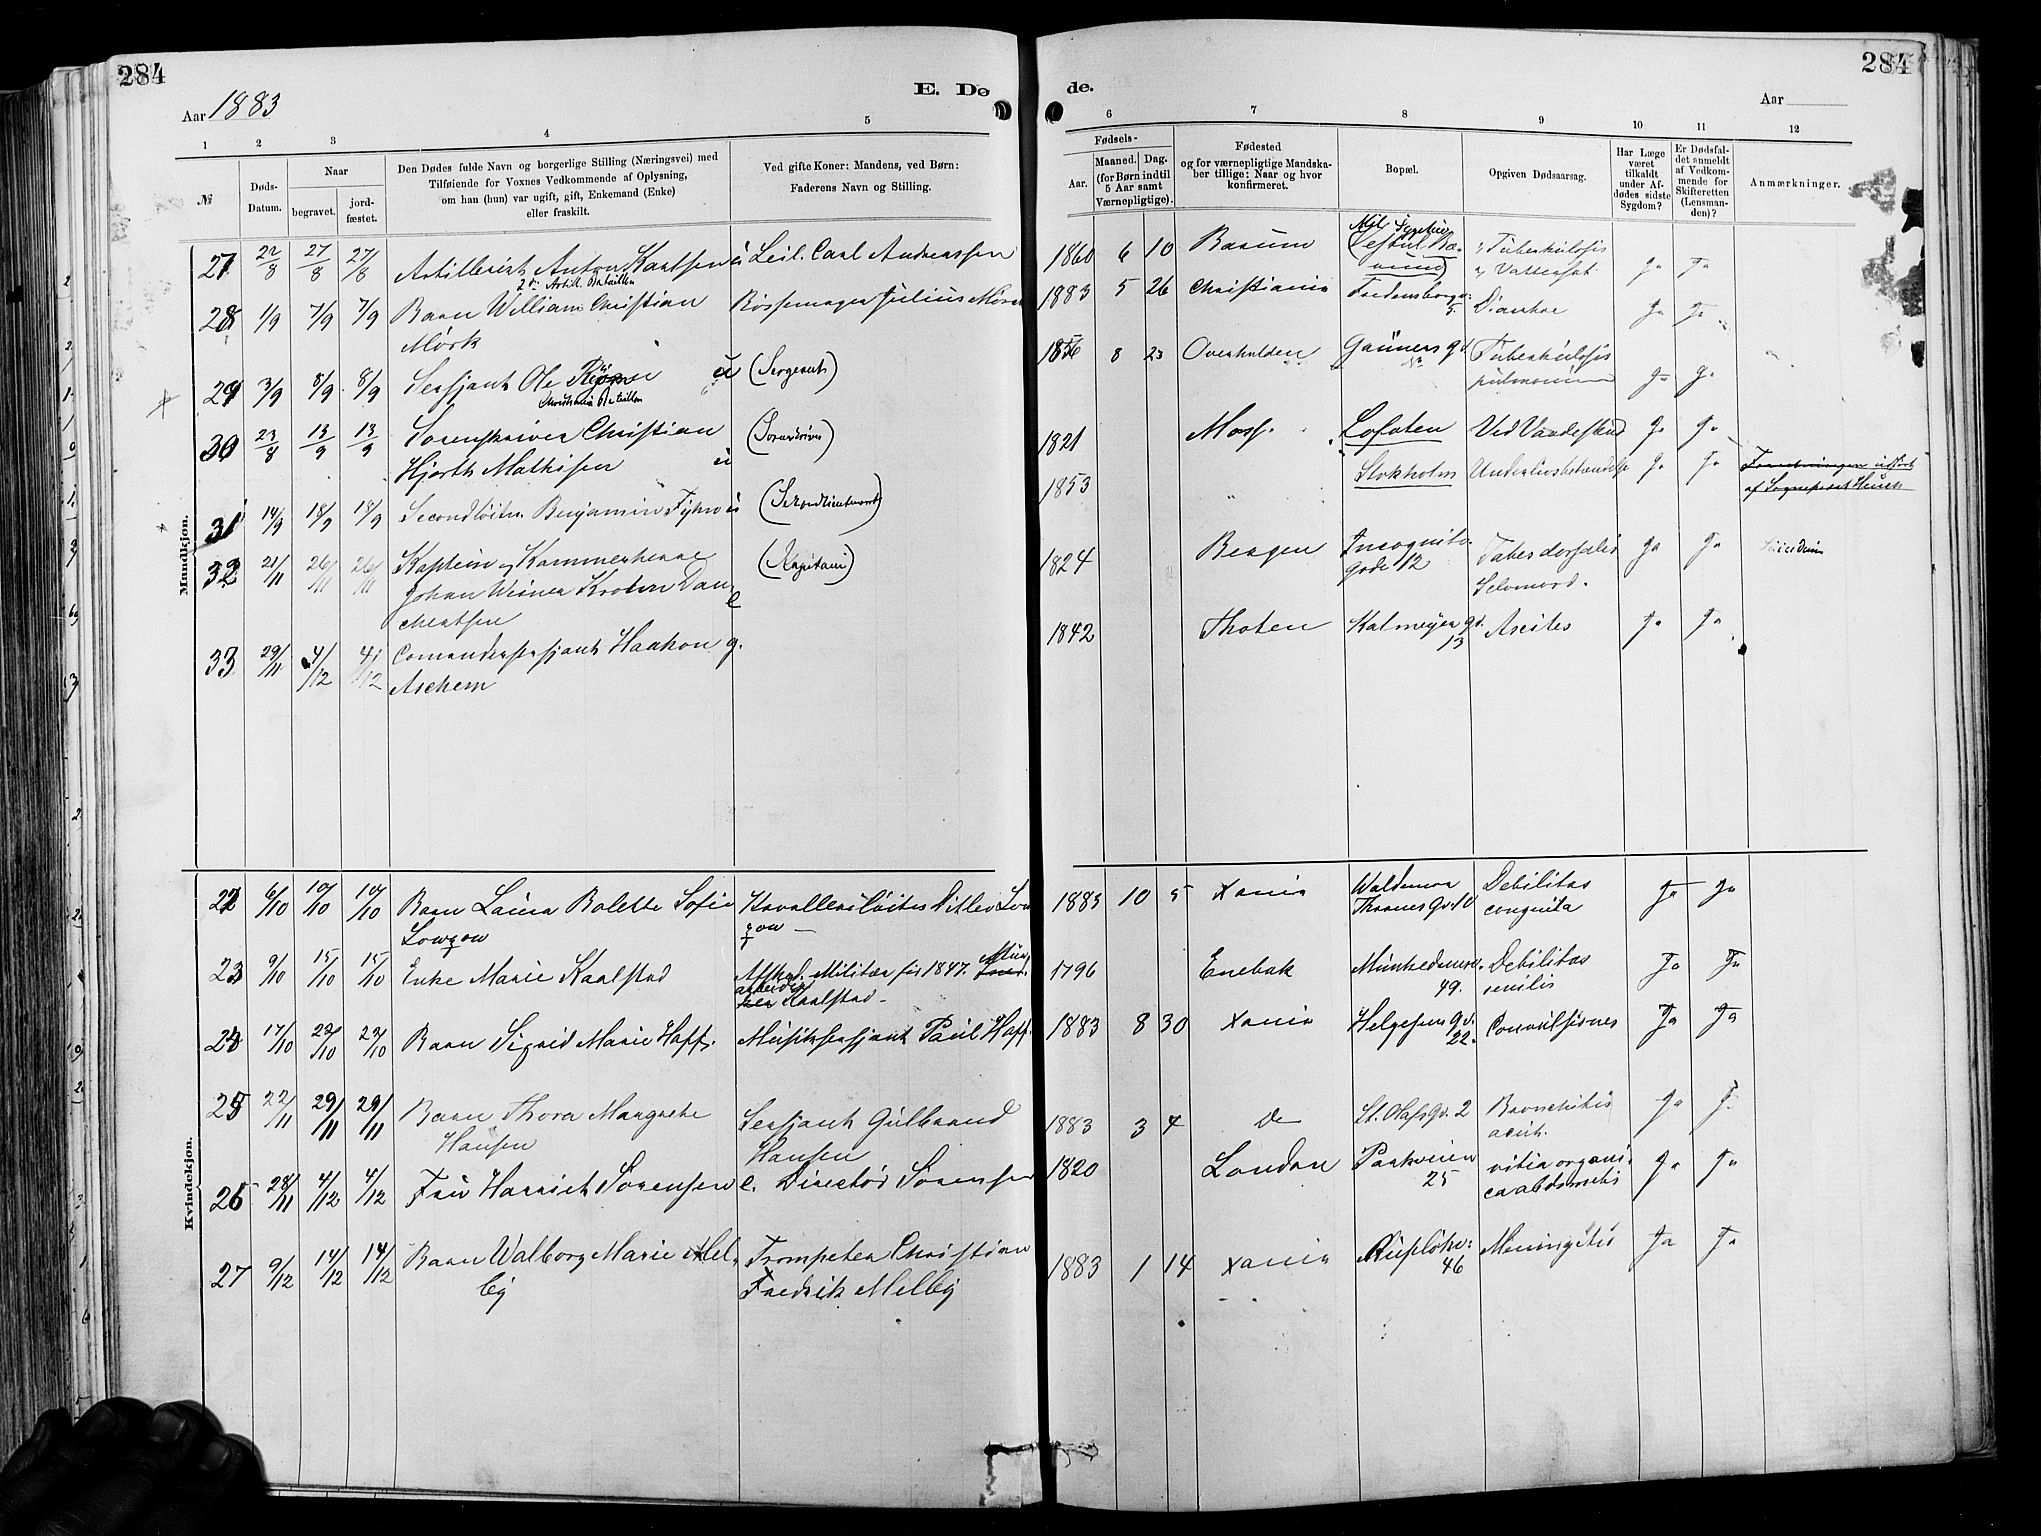 284
284
Aar 1883
E. Dø
de.
Aar
1 2 3 4 5 6 7 8 9 10 11 12
№
Døds-Datum.
Naar
begravet.
jord-fæstet.
Den Dødes fulde Navn og borgerlige Stilling (Næringsvei) med
Tilføiende for Voxnes Vedkommende af Oplysning,
om han (hun) var ugift, gift, Enkemand (Enke)
eller fraskilt.
Ved gifte Koner: Mandens, ved Børn:
Faderens Navn og Stilling.
Fødsels-
Aar.
Maaned. Dag.
(for Børn indtil
5 Aar samt
Værnepligtige).
Fødested
og for værnepligtige Mandska-
ber tillige: Naar og hvor
konfirmeret.
Bopæl.
Opgiven Dødsaarsag.
Har Læge
været
tilkaldt
under Af-
dødes sidste
Sygdom?
Er Dødsfal-
det anmeldt
af Vedkom-
mende for
Skifteretten
(Lensman-
den)?
Anmærkninger.
Mandkjøn.
27 22/8 27/8 27/8 Artillerist Anton Karlsen u Leil. Carl Andreassen 1860 6 10 Bærum Tuberkulosis Ja Ja
2den Artill. Bataillon
28 1/9 7/9 7/9 Barn William Christian Bøssemager Julius Mørk 1883 5 26 Christiania Fredensborgv. 5. Diarrhoe Ja Ja
Mørk
29 3/9 8/9 8/9 Sersjant Ole u (Sergeant) 1856 8 23 Overhalden Tuberkulosis Ja Ja
Christiania Bataillon pulmonum
30 23/8 13/9 13/9 Sorenskriver Christian 1821 Moss Lofoten Ved Vaadeskud Ja Ja
Hjorth Mathisen u
31 14/9 18/9 18/9 Secondløitn. Benjamin u (Sekondlieutenant) 1853 " Stokholm Underlivsbetændelse Ja Ja
32 21/11 26/11 26/11 Kaptein og Kammerherre (Kapitain) 1824 Bergen Incognito Tabes dorsalis Ja Ja Suicidium
Johan Werner Krohn Dan gade 12 Selvmord.
chertsen
33 29/11 4/12 4/12 Comandersersjant Haakon g. 1842 Thoten Kalmeyer gd. 13 Ascites Ja Ja
Aschem
Kvindekjøn.
22 6/10 10/10 10/10 Barn Laura Bolette Sofie Kavalleriløitn. Ditlev Low 1883 10 5 Xania Waldemar Debilitas Ja Ja
Lowzow zow Thranes Gd. 10 congnita
23 9/10 15/10 15/10 Enke Marie Kaalstad Afskd. Militær før 1847. 1796 Enebak Munkedamsv. 49. Debilitas Ja Ja
arbeider Kaalstad senilis
24 17/10 22/10 22/10 Barn Sigrid Marie Haff. Musiksersjant Paul Haff. 1883 8 30 Xania Helgesens gd. 22. Convulsiones Ja Ja
25 22/11 29/11 29/11 Barn Thora Margrethe Sersjant Gulbrand 1883 3 4 Do St. Olafs Gd. 2 Bronchitis Ja J.
Hansen Hansen acut.
26 28/11 4/12 4/12 Fru Harriet Sørensen e. Directør Sørensen 1820 London Parkveien 25 vitia organi Ja Ja
27 9/12 14/12 14/12 Barn Walborg Marie Mel Trompeter Christian 1883 1 14 Xania 46 Meningitis Ja Ja
by Fredrik Melby